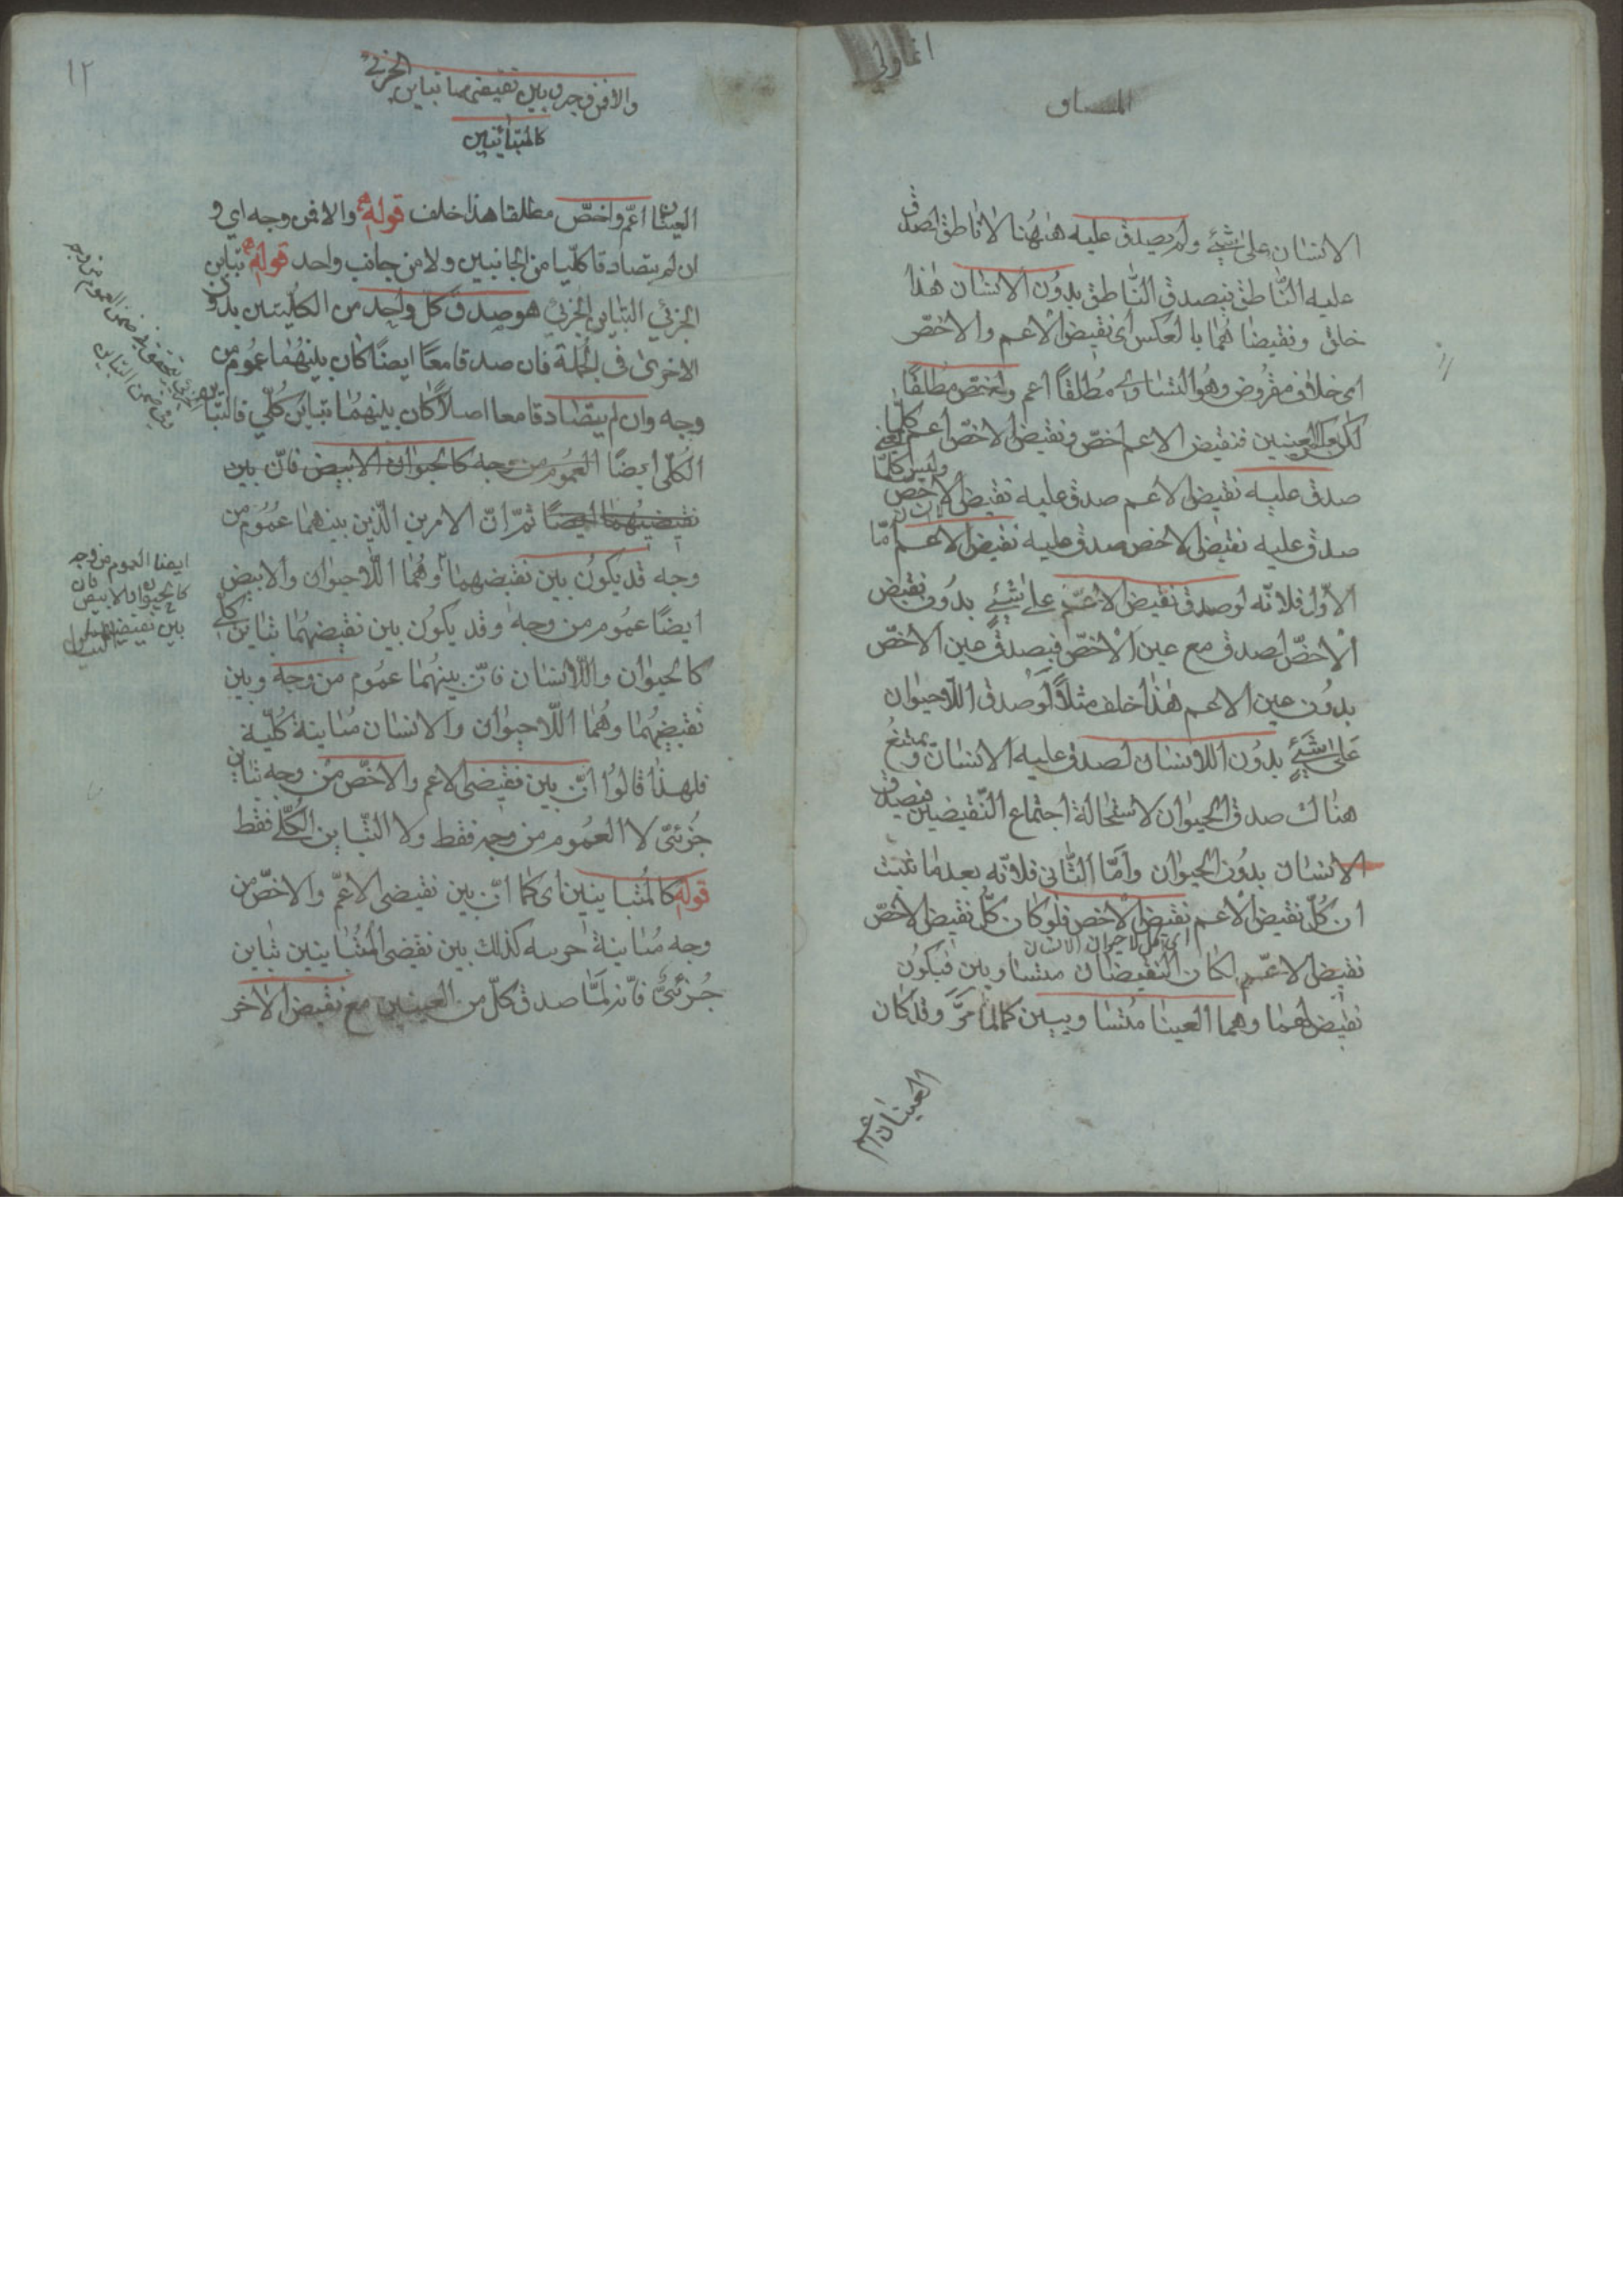 المساوى
الانسان على شئ ولم يصدق عليه هٰهُنا لاناطق لصدق
عليه النّاطق فيصدق النّاطق بدون الانسان هٰذا
خلف ونقيضاهُما بالعكس اى نقيض الاعم والاخصّ
مطلقًا اعم واخص مُطلقًا
لكن بعكس العينين فنقيض الاعم اخصّ ونقيض الاخصّ اعم
صدق عليه نقيض الاعم صدق عليه نقيض الاخص وليس كلّما
صدق عليه نقيض الاخص صدق عليه نقيض الاعم امّا
الاوّل فلانّه لو صدق نقيض الاعمّ على شئ بدُون نقيض
الاخصّ لصدق مع عين الاخصّ فيصدق عين الاخصّ
بدُون عين الاعم هٰذا خلف مثلًا لو صدق اللّاحيوان
على شئ بدُون اللاانسان لصدق عليه الانسان ويمتنعُ
هناك صدق الحيوان لاستحالة اجتماع النّقيضين فيصدق
الانسان بدُون الحيوان وامّا الثّانى فلانّه بعد ما ثبت
ان كُلّ نقيض الاعم نقيض الاخص فلو كان كلّ نقيض الاخصّ
نقيض الاعمّ لكان النّقيضان متساويين فيكُون
نقيضاهما وهما العينا مُتساويين كما مرَّ وقد كان
العينان اعم
١٢
والا فمن وجه وبين نقيضيهما تباين الجزئى
كالمتبائنين
العينان اعمّ واخصّ مطلقا هذا خلف قوله والا فمن وجه اى و
ان لم يتصادقا كلّيا من الجانبين ولا من جانب واحد قوله تباين
الجزئي التباين الجزئي هو صدق كل واحد من الكليتين بدون
الاخرىٰ فى الجُملة فان صدقا معًا ايضًا كان بينهُما عمُوم من
وجه وان لم يتصادقا معا اصلاً كان بينهمُا تباين كُلّي فالتّباين
الكُلّى ايضًا العمُوم من وجه كالحيوان الابيض فانّ بين
نقيضيهُما ايضًا ثمّ انّ الامرين الّذين بينهما عمُوم من
وجه قد يكُون بين نقيضهما وهُما اللّاحيوان والابيض
ايضًا عمُوم من وجه وقد يكُون بين نقيضهُما تباين كلّى
كالحيوان واللّاانسان فانّ بينهُما عمُوم من وجه وبين
نقيضهُما وهُما اللّاحيوان والانسان مُباينة كُليّة
فلهذٰا قالُوا انّ بين نقيضى الاعم والاخصّ من وجه تباين
جُزئىّ لا العمُوم من وجه فقط ولا التّباين الكُلّى فقط
قوله كالمُتباينين اى كما انّ بين نقيضى الاعمّ والاخصّ من
وجه مُباينة جزئية كذلك بين نقيضى المُتباينين تباين
جُزئىّ فانّه لمّا صدق كلّ من العينين مع نقيض الاخر
ايضا العموم من وجه
كالحيوان والابيض فان
بين نقيضيهما